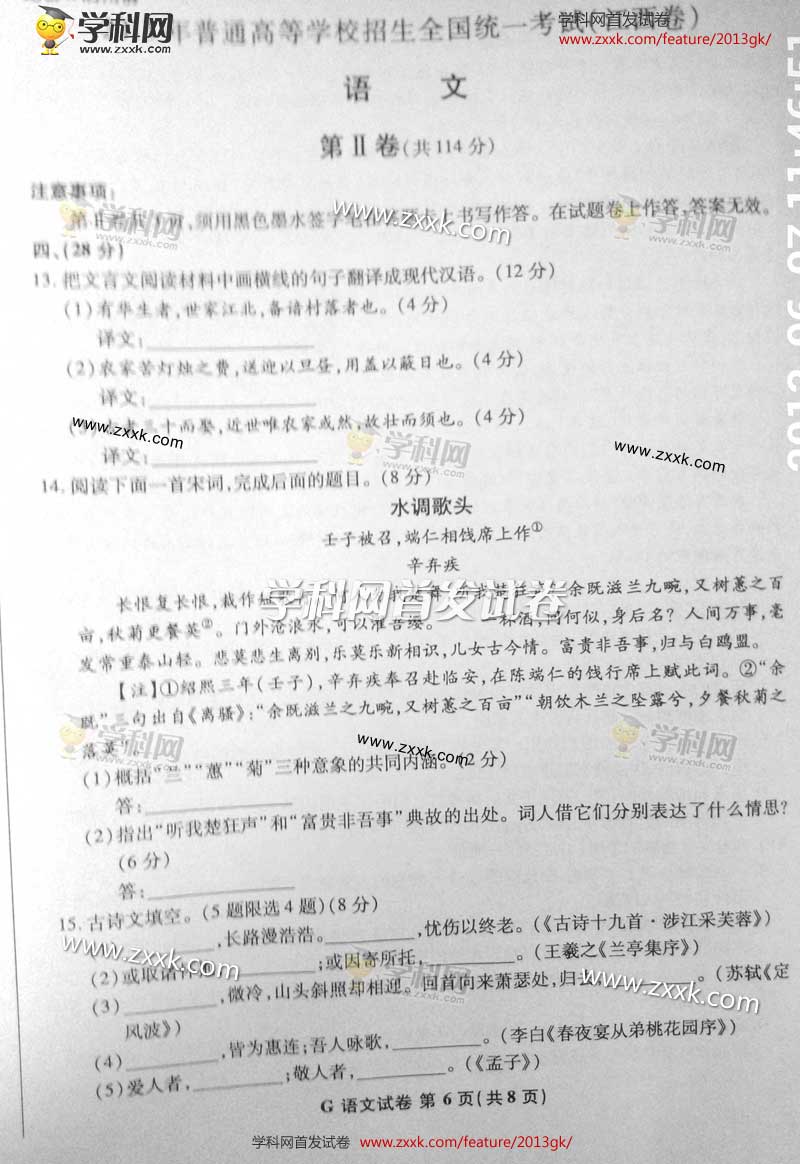 学科网
zxxk.com
学科网首发试卷
年普通高等学校招生全国统一考试(江西卷)
www.zxxk.com/feature/2013gk/
语 文
第Ⅱ卷(共114分)
注意事项:
第Ⅱ卷共 页,须用黑色墨水签字笔在答题卡上书写作答。在试题卷上作答,答案无效。
www.zxxk.com
学科网
zxxk.com
四、(28分)
13.把文言文阅读材料中画横线的句子翻译成现代汉语。(12分)
(1)有华生者,世家江北,备谙村落者也。(4分)
译文:
(2)农家苦灯烛之费,送迎以旦昼,用盖以蔽日也。(4分)
译文:
十而娶,近世唯农家或然,故壮而须也。(4分)
www.zxxk.com
学科网
zxxk.com
www.zxxk.com
译文:
14.阅读下面一首宋词,完成后面的题目。(8分)
水调歌头
壬子被召,端仁相饯席上作①
辛弃疾
长恨复长恨,裁作短 余既滋兰九畹,又树蕙之百
学科网首发试卷
亩,秋菊更餐英②。门外沧浪水,可以濯吾缨。 一杯酒,问何似,身后名?人间万事,毫
发常重泰山轻。悲莫悲生离别,乐莫乐新相识,儿女古今情。富贵非吾事,归与白鸥盟。
【注】①绍熙三年(壬子),辛弃疾奉召赴临安,在陈端仁的饯行席上赋此词。②“余
既”三句出自《离骚》:“余既滋兰之九畹,又树蕙之百亩”“朝饮木兰之坠露兮,夕餐秋菊之
落英”
学科网
zxxk.com
www.zxxk.com
学科网
zxxk.com
(1)概括“兰”“蕙”“菊”三种意象的共同内涵。(2分)
答:
(2)指出“听我楚狂声”和“富贵非吾事”典故的出处。词人借它们分别表达了什么情思?
(6分)
答:
15.古诗文填空。(5题限选4题)(8分)
,长路漫浩浩。 ,忧伤以终老。(《古诗十九首·涉江采芙蓉》)
www.zxxk.com
(2)或取诸 ;或因寄所托, 。(王羲之《兰亭集序》)
学科网
zxxk.com
(3) ,微冷,山头斜照却相迎。回首向来萧瑟处,归 。(苏轼《定
www.zxxk.com
风波》)
(4) ,皆为惠连;吾人咏歌, 。(李白《春夜宴从弟桃花园序》)
(5)爱人者, ;敬人者, 。(《孟子》)
G 语文试卷 第6页(共8页)
学科网首发试卷 www.zxxk.com/feature/2013gk/